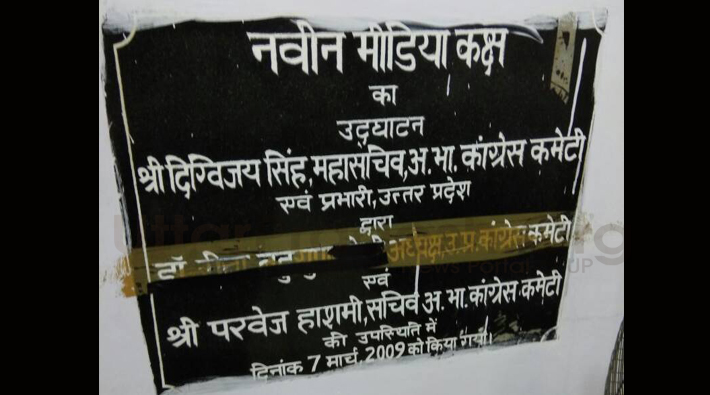 नवीन मीडिया कक्ष
का
उद्घाटन
श्री दिग्विजय सिंह, महासचिव, अ. भा. कांग्रेस कमेटी
एवं प्रभारी, उत्तर प्रदेश
द्वारा
डॉ. अध्यक्ष, उ. प्र. कांग्रेस कमेटी
एवं
श्री परवेज हाशमी, सचिव अ. भा. कांग्रेस कमेटी
की उपस्थिति में
दिनांक 7 मार्च, 2009 को किया गया।